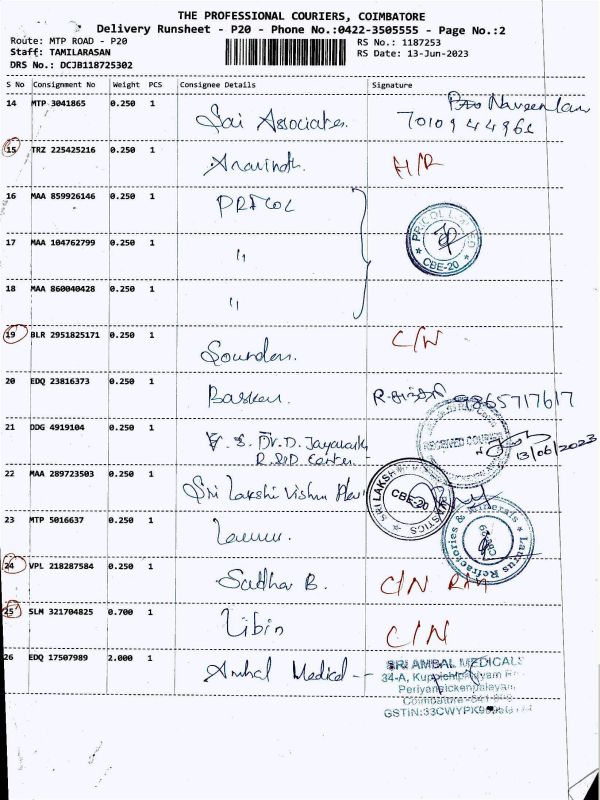 THE PROFESSIONAL COURIERS, COIMBATORE
Delivery Runsheet - P20 - Phone No.:0422-3505555 - Page No.:2
Route: MTP ROAD - P20
RS No.: 1187253
Staff: TAMILARASAN
RS Date: 13-Jun-2023
DRS No.: DCJB118725302
S No Consignment No Weight PCS Consignee Details Signature
14 MTP 3041865 0.250 1 Sai Associates.
15 TRZ 225425216 0.250 1 Aravindh.
16 MAA 859926146 0.250 1 PRICOL
PRICOL LIMITED
CBE-20
17 MAA 104762799 0.250 1 "
18 MAA 860040428 0.250 1 "
19 BLR 2951825171 0.250 1 C/N
20 EDQ 23816373 0.250 1 9865717617
21 DDG 4919104 0.250 1 Dr. D.
R S&D Center
RECEIVED
13/06/2023
22 MAA 289723503 0.250 1 Sri Lakshi Vishnu
SRI LAKSHMI
CBE-20
23 MTP 5016637 0.250 1
Laurus Refractories & Minerals
24 VPL 218287584 0.250 1 B. C/N
25 SLM 321704825 0.700 1 Libin C/N
26 EDQ 17507989 2.000 1 Ambal Medical
SRI AMBAL MEDICALS
34-A, Kuppichipalayam
Periyanaickenpalayam
Coimbatore-641
GSTIN:33CWYPK